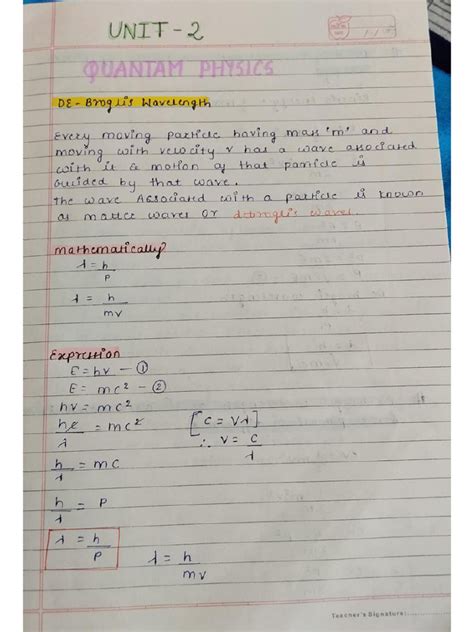 UNIT-2
QUANTAM PHYSICS
DE-Broglis Wavelength
Every moving particle having mass 'm' and
moving with velocity v has a wave associated
with it & motion of that particle is
guided by that wave.
The wave Associated with a particle is known
as matter waves or debroglis waves.
mathematically
λ = h/p
λ = h/mv
Expression
E = hν — ①
E = mc² — ②
hν = mc²
hc/λ = mc² [c = νλ]
∴ ν = c/λ
h/λ = mc
h/λ = P
λ = h/P λ = h/mv
Teacher's Signature: